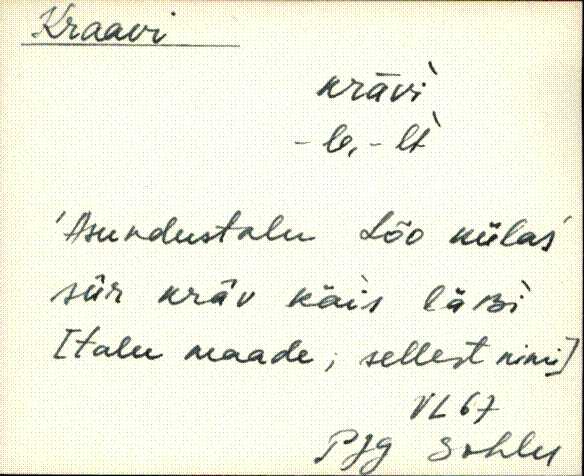 Kraavi
krāvì
-le, -lt
'Asundustalu Lõo külas'
sūr krāv käis läʙì
[talu maade, sellest nimi]
VL 67
PJg Sohlu